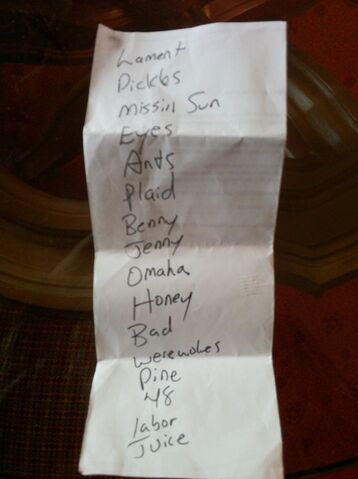 Lament
Pickles
Missin Sun
Eyes
Ants
Plaid
Benny
Jenny
Omaha
Honey
Bad
Werewolves
Pine
48
labor
Juice